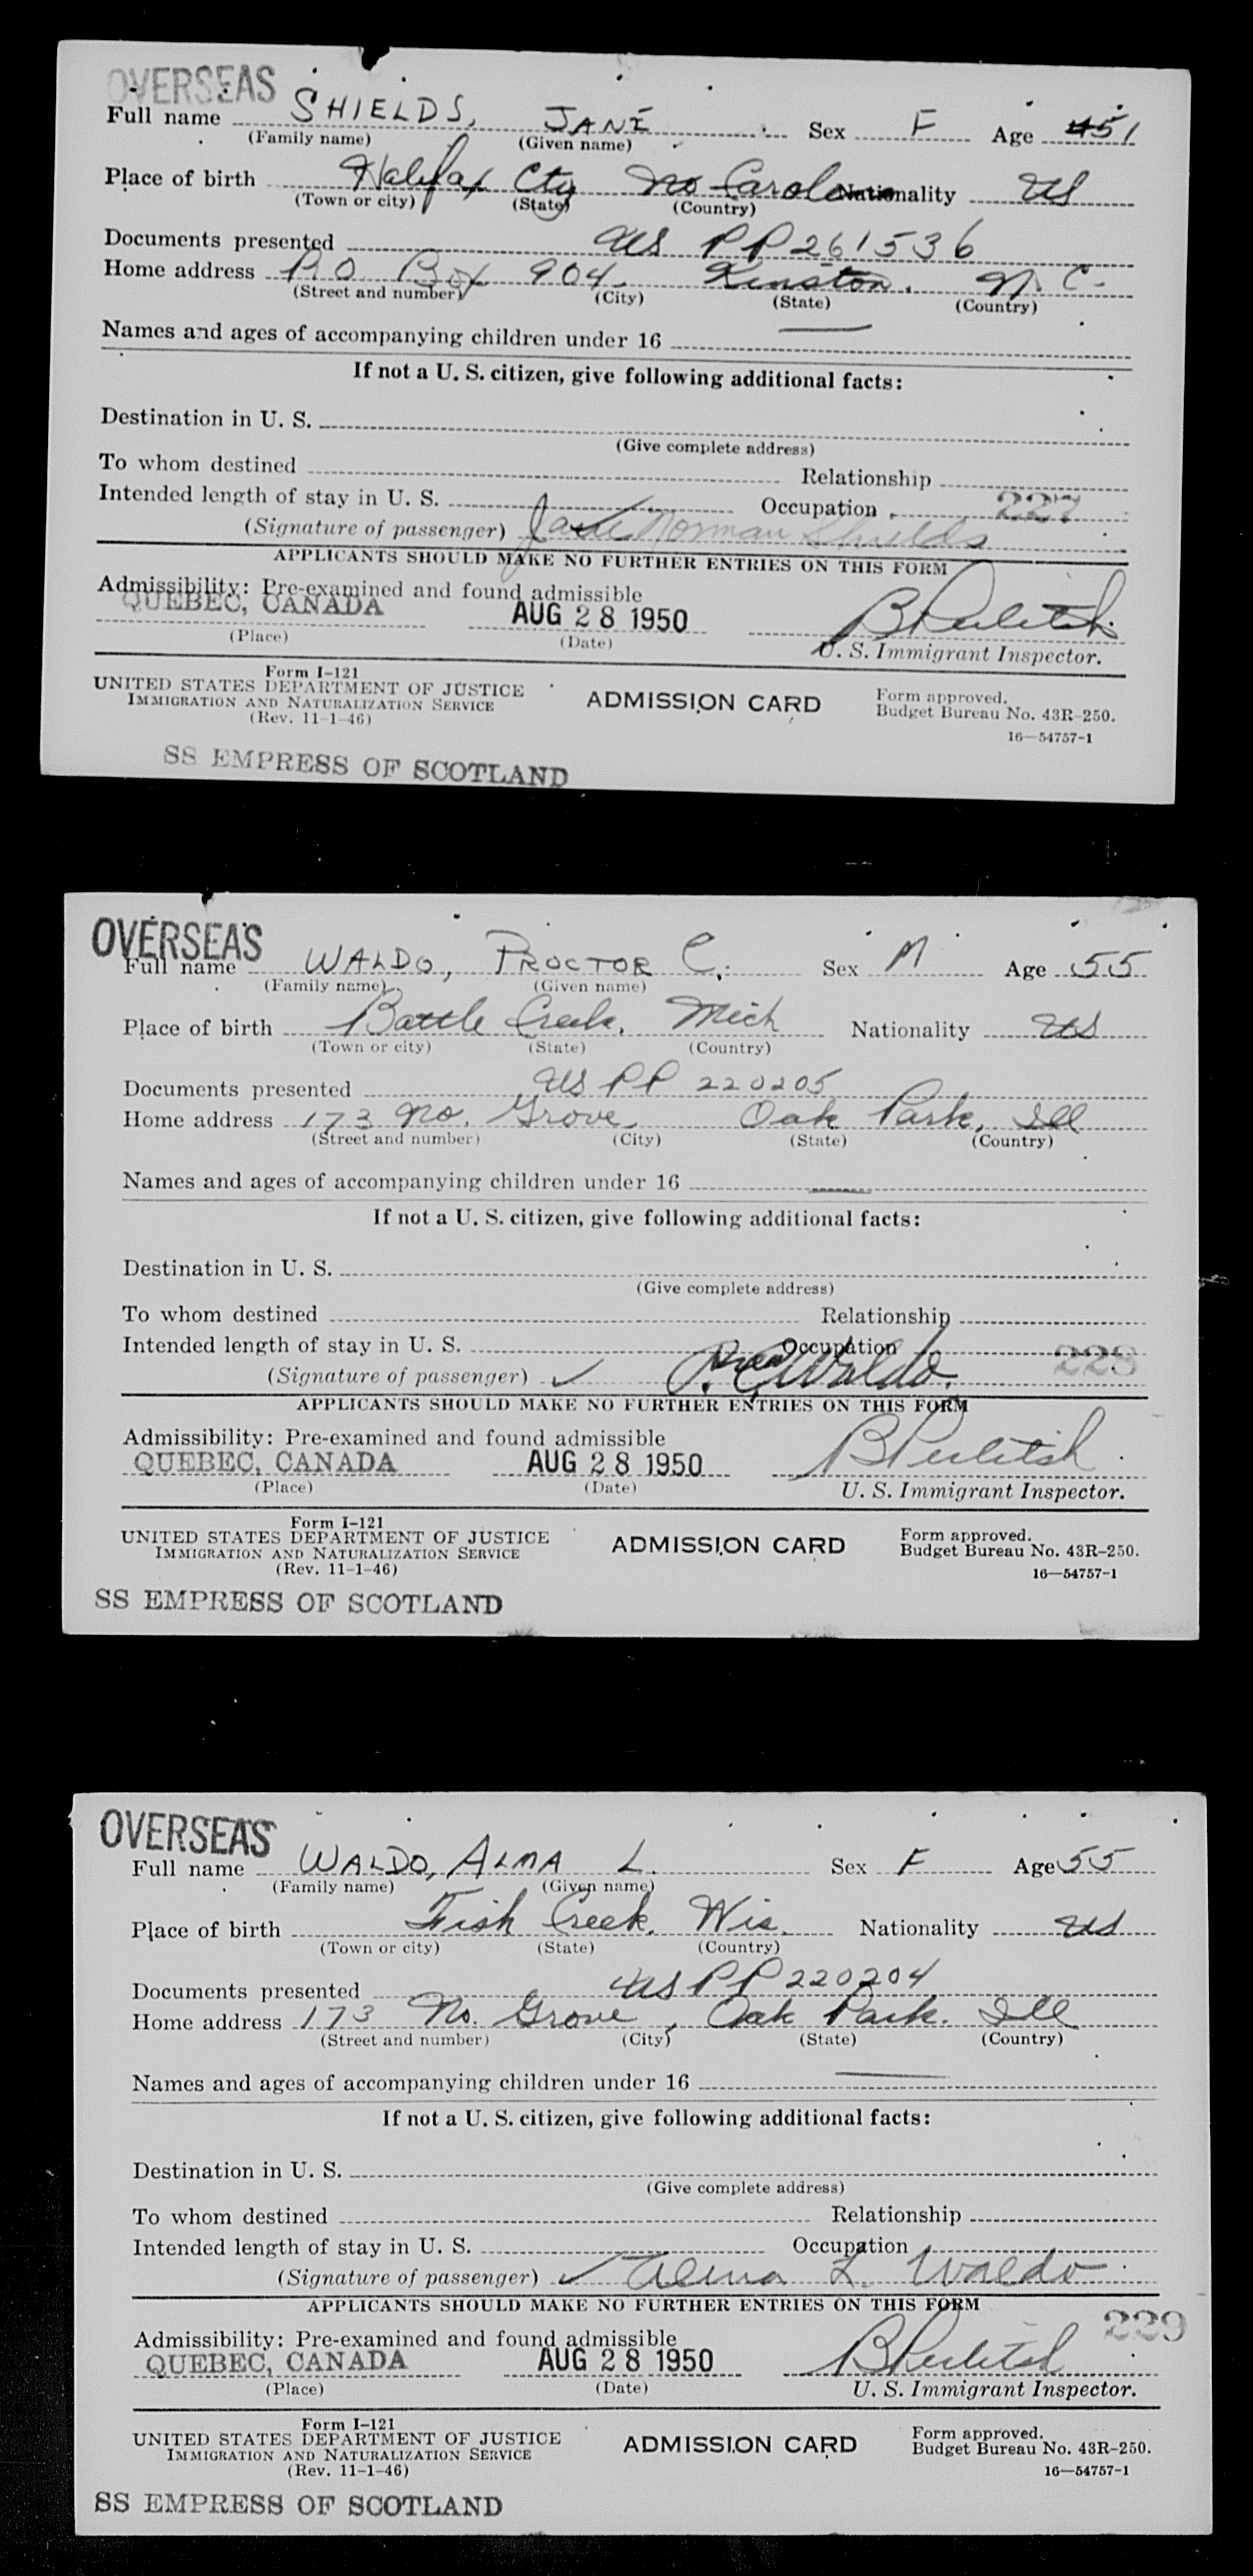 OVERSEAS
Full name SHIELDS, JANE Sex F Age 51
(Family name) (Given name)
Place of birth Halifax Cty No Carolina Nationality US
(Town or city) (State) (Country)
Documents presented US PP 261536
Home address P.O. Box 904. Kinston, N. C.
(Street and number) (City) (State) (Country)
Names and ages of accompanying children under 16 —
If not a U. S. citizen, give following additional facts:
Destination in U. S.
(Give complete address)
To whom destined Relationship
Intended length of stay in U. S. Occupation 227
(Signature of passenger) Jane Norman Shields
APPLICANTS SHOULD MAKE NO FURTHER ENTRIES ON THIS FORM
Admissibility: Pre-examined and found admissible
QUEBEC, CANADA AUG 28 1950
(Place) (Date) U. S. Immigrant Inspector.
Form I-121
UNITED STATES DEPARTMENT OF JUSTICE
IMMIGRATION AND NATURALIZATION SERVICE
(Rev. 11-1-46)
ADMISSION CARD
Form approved.
Budget Bureau No. 43R-250.
16—54757-1
SS EMPRESS OF SCOTLAND
OVERSEAS
Full name WALDO, PROCTOR C. Sex M Age 55
(Family name) (Given name)
Place of birth Battle Creek, Mich Nationality US
(Town or city) (State) (Country)
Documents presented US PP 220205
Home address 173 No. Grove, Oak Park, Ill
(Street and number) (City) (State) (Country)
Names and ages of accompanying children under 16 —
If not a U. S. citizen, give following additional facts:
Destination in U. S.
(Give complete address)
To whom destined Relationship
Intended length of stay in U. S. Occupation 228
(Signature of passenger) ✓ P. C. Waldo.
APPLICANTS SHOULD MAKE NO FURTHER ENTRIES ON THIS FORM
Admissibility: Pre-examined and found admissible
QUEBEC, CANADA AUG 28 1950
(Place) (Date) U. S. Immigrant Inspector.
Form I-121
UNITED STATES DEPARTMENT OF JUSTICE
IMMIGRATION AND NATURALIZATION SERVICE
(Rev. 11-1-46)
ADMISSION CARD
Form approved.
Budget Bureau No. 43R-250.
16—54757-1
SS EMPRESS OF SCOTLAND
OVERSEAS
Full name WALDO, ALMA L. Sex F Age 55
(Family name) (Given name)
Place of birth Fish Creek, Wis. Nationality US
(Town or city) (State) (Country)
Documents presented US PP 220204
Home address 173 No. Grove, Oak Park. Ill
(Street and number) (City) (State) (Country)
Names and ages of accompanying children under 16 —
If not a U. S. citizen, give following additional facts:
Destination in U. S.
(Give complete address)
To whom destined Relationship
Intended length of stay in U. S. Occupation
(Signature of passenger) ✓ Alma L. Waldo
APPLICANTS SHOULD MAKE NO FURTHER ENTRIES ON THIS FORM
229
Admissibility: Pre-examined and found admissible
QUEBEC, CANADA AUG 28 1950
(Place) (Date) U. S. Immigrant Inspector.
Form I-121
UNITED STATES DEPARTMENT OF JUSTICE
IMMIGRATION AND NATURALIZATION SERVICE
(Rev. 11-1-46)
ADMISSION CARD
Form approved.
Budget Bureau No. 43R-250.
16—54757-1
SS EMPRESS OF SCOTLAND